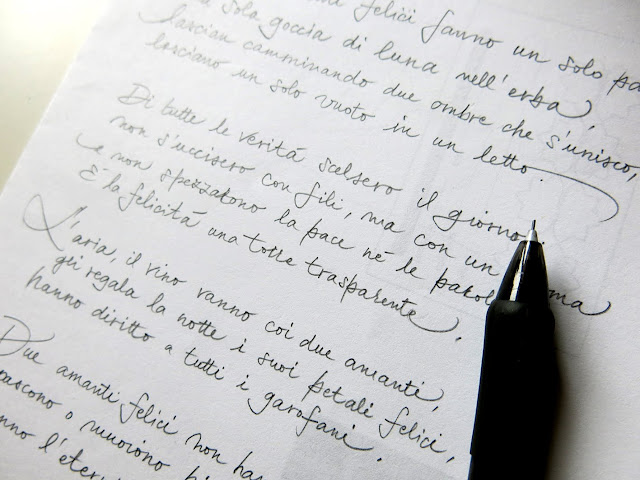 felici fanno un solo pa
sola goccia di luna nell'erba,
lascian camminando due ombre che s'unisco,
lasciano un solo vuoto in un letto.
Di tutte le verità scelsero il giorno:
non s'uccisero con fili, ma con un oma
e non spezzarono la pace né le parol
È la felicità una torre trasparente.
L'aria, il vino vanno coi due amanti,
gli regala la notte i suoi petali felici,
hanno diritto a tutti i garofani.
Due amanti felici non han
nascono o muoiono
anno l'eter